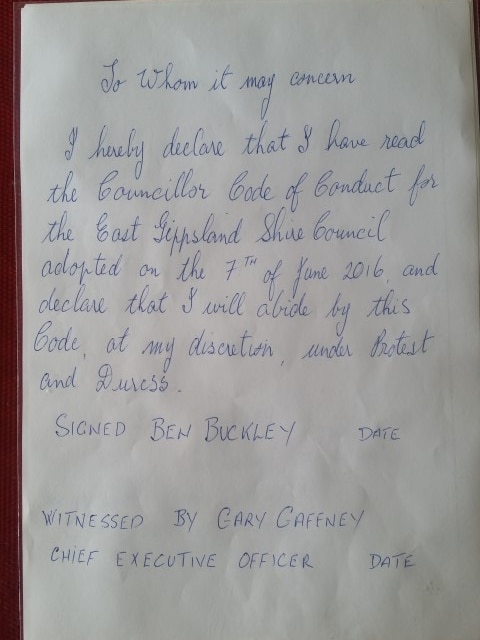 To Whom it may concern
I hereby declare that I have read
the Councillor Code of Conduct for
the East Gippsland Shire Council
adopted on the 7TH of June 2016, and
declare that I will abide by this
Code, at my discretion, under Protest
and Duress.
SIGNED BEN BUCKLEY DATE
WITNESSED BY GARY GAFFNEY
CHIEF EXECUTIVE OFFICER DATE